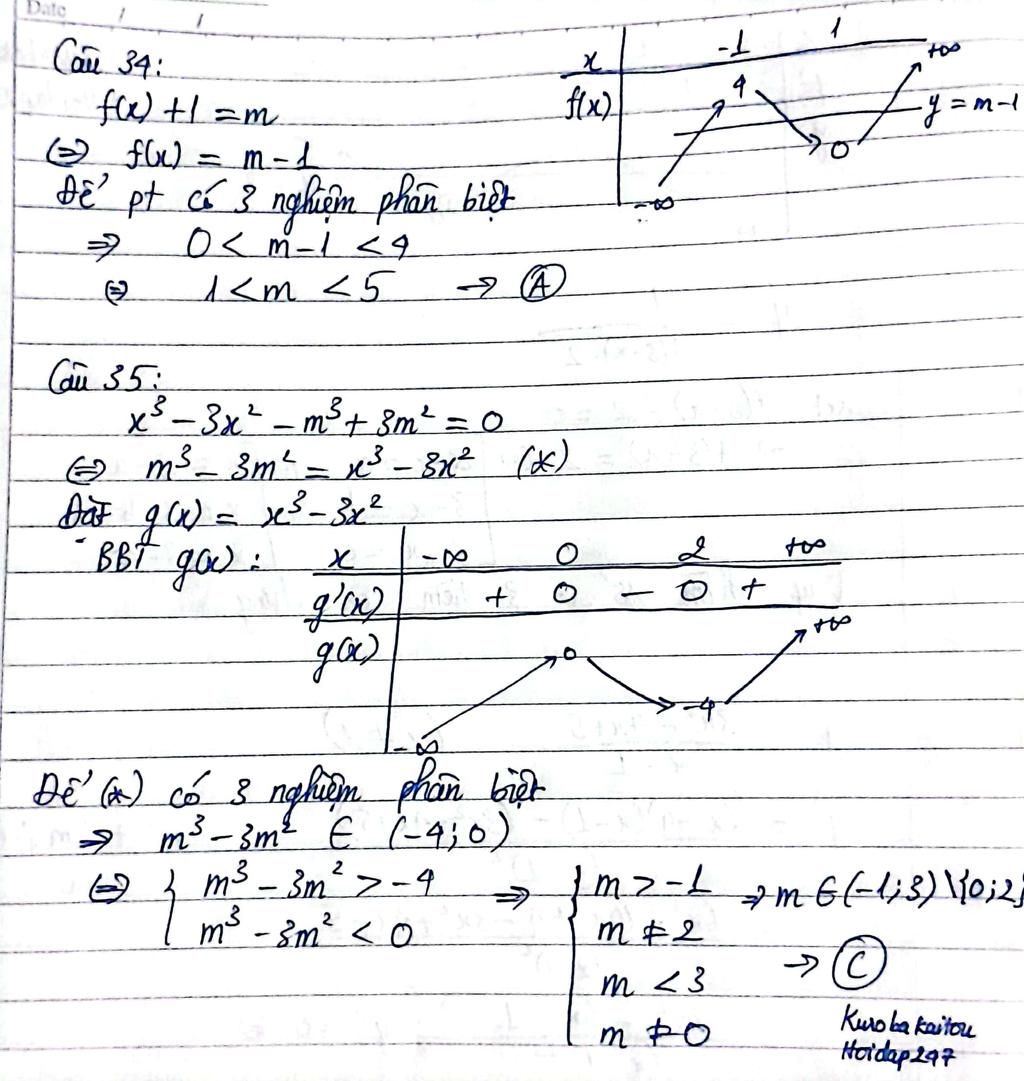 Date / /
Câu 34:
f(x) + 1 = m
⇔ f(x) = m - 1
Để pt có 3 nghiệm phân biệt
⇒ 0 < m-1 < 4
⇔ 1 < m < 5 → Ⓐ
x -1 1
f(x) -∞ 4 0 +∞
y = m-1
Câu 35:
x³ - 3x² - m³ + 3m² = 0
⇔ m³ - 3m² = x³ - 3x² (*)
Đặt g(x) = x³ - 3x²
BBT g(x):
x -∞ 0 2 +∞
g'(x) + 0 - 0 +
g(x) -∞ 0 -4 +∞
Để (*) có 3 nghiệm phân biệt
⇒ m³ - 3m² ∈ (-4; 0)
⇔ { m³ - 3m² > -4
m³ - 3m² < 0
⇒ { m > -1
m ≠ 2
m < 3
m ≠ 0
⇒ m ∈ (-1; 3) \ {0; 2}
→ Ⓒ
Kuroba kaitou
Hoidap247